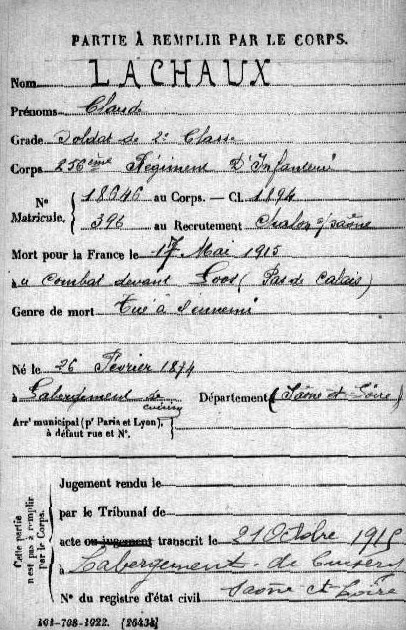 PARTIE À REMPLIR PAR LE CORPS.
Nom LACHAUX
Prénoms Claude
Grade Soldat de 2e Classe
Corps 256ème Régiment D'Infanterie
N° Matricule. { 18646 au Corps. — Cl. 1894
396 au Recrutement Chalon s/ Saône
Mort pour la France le 17 Mai 1915
à u combat devant Loos (Pas de Calais)
Genre de mort Tué à l'ennemi
Né le 26 Février 1874
à Labergement de Cuisery Département (Saône et Loire)
Arrt municipal (pr Paris et Lyon), à défaut rue et N°. {
Cette partie n'est pas à remplir par le Corps.
Jugement rendu le
par le Tribunal de
acte ou jugement transcrit le 21 Octobre 1915
à Labergement de Cuisery
N° du registre d'état civil Saône et Loire
101-708-1922. [26434]